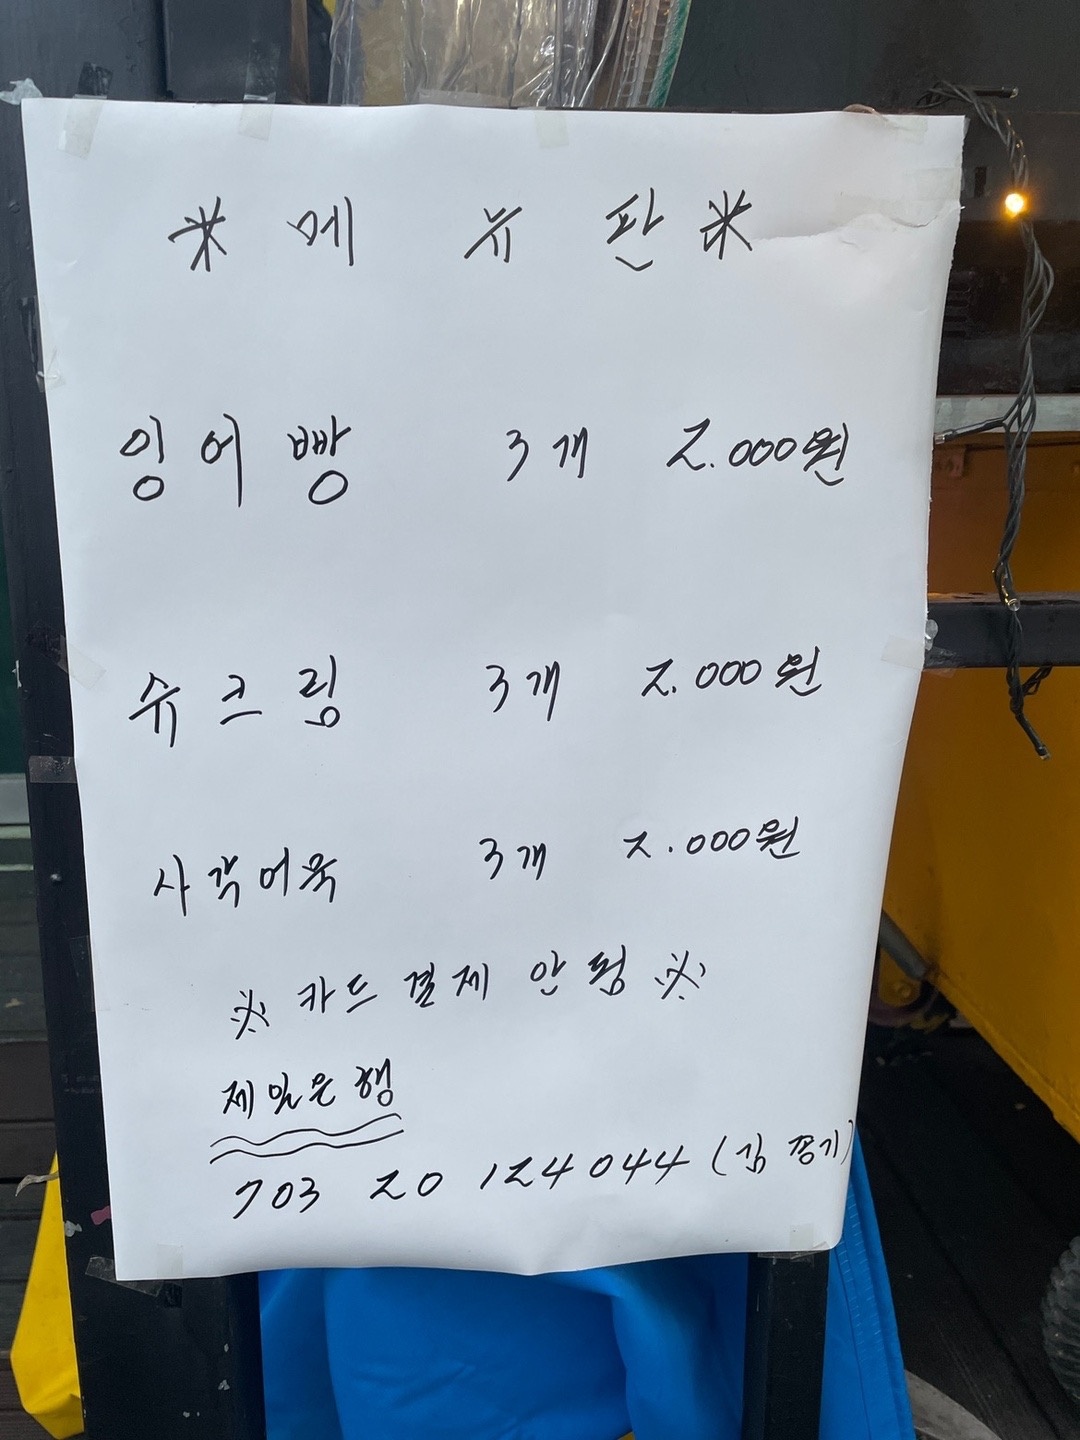 ※ 메 뉴 판 ※
잉어빵 3개 2.000원
슈크링 3개 2.000원
사각어묵 3개 2.000원
※ 카드결제 안됨 ※
제일은행
703 20 124044 (김 경기)